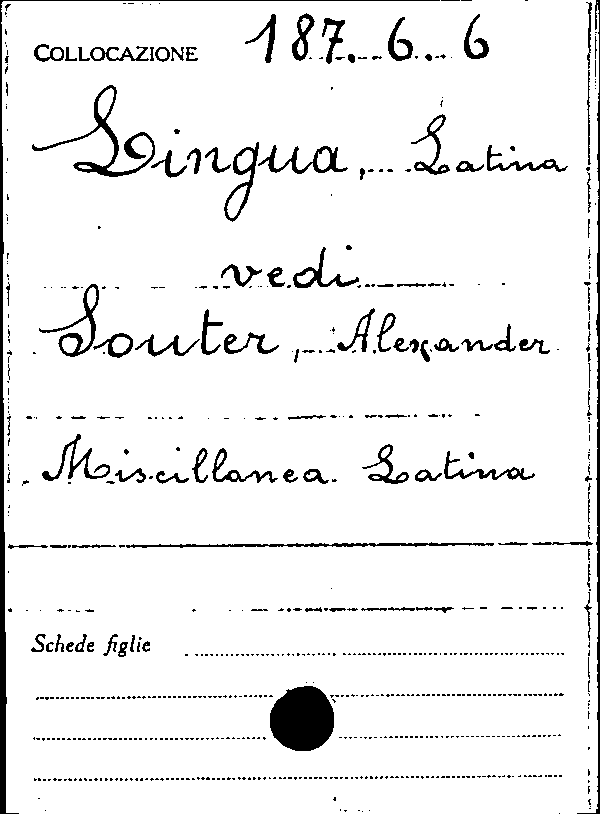 COLLOCAZIONE 187. 6. 6
Lingua, Latina
vedi
Souter, Alexander
Miscillanea Latina
Schede figlie